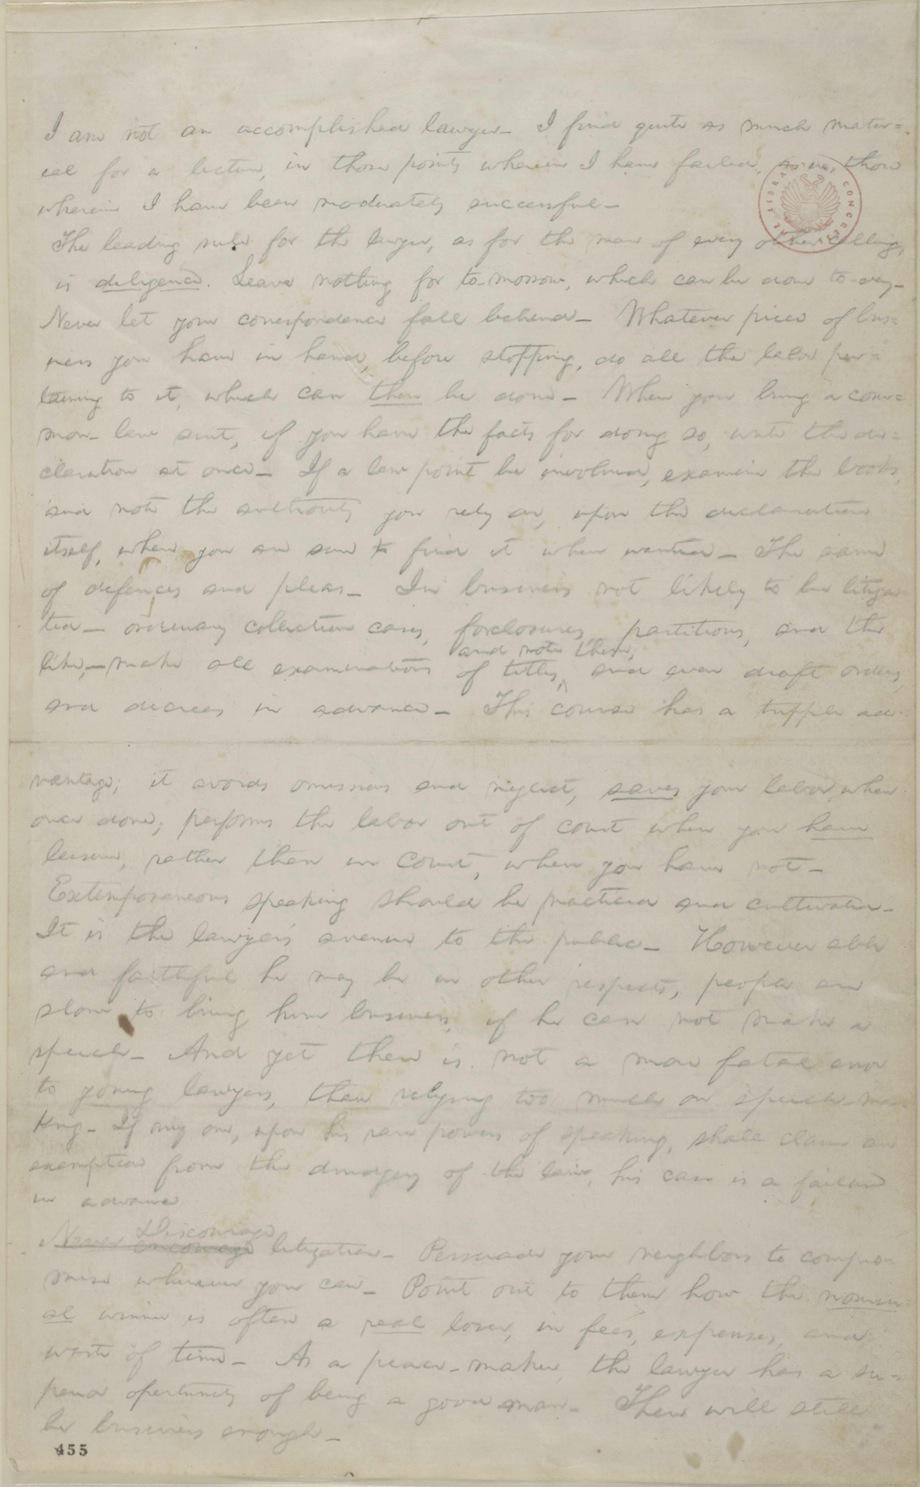 I am not an accomplished lawyer— I find quite as much mater=
ial for a lecture, in those points wherein I have failed, as in those
wherein I have been moderately successful—
The leading rule for the lawyer, as for the man of every other calling,
is diligence. Leave nothing for to-morrow, which can be done to-day—
Never let your correspondence fall behind— Whatever piece of bus=
iness you have in hand, before stopping, do all the labor per=
taining to it, which can then be done— When you bring a com=
mon-law suit, if you have the facts for doing so, write the de=
claration at once— If a law point be involved, examine the books,
and note the authority you rely on, upon the declaration
itself, where you are sure to find it when wanted— The same
of defences and pleas— In business not likely to be litiga=
ted— ordinary collection cases, foreclosures, partitions, and the
like,— make all examinations of titles, and note them, and even draft orders,
and decrees in advance— This course has a tripple ad-
vantage; it avoids omissions and neglect, saves your labor, when
once done; performs the labor out of court when you have
leisure, rather than in court, when you have not—
Extemporaneous speaking should be practiced and cultivated—
It is the lawyer's avenue to the public— However able
and faithful he may be in other respects, people are
slow to bring him business, if he can not make a
speech— And yet there is not a more fatal error
to young lawyers, than relying too much on speech-ma-
king— If any one, upon his rare powers of speaking, shall claim an
exemption from the drudgery of the law, his case is a failure
in advance
Never encourage Discourage litigation— Persuade your neighbors to compro-
mise whenever you can— Point out to them how the nomin-
al winner is often a real loser, in fees, expenses, and
waste of time— As a peace-maker, the lawyer has a su-
perior opertunity of being a good man— There will still
be business enough—
455
LIBRARY OF CONGRESS